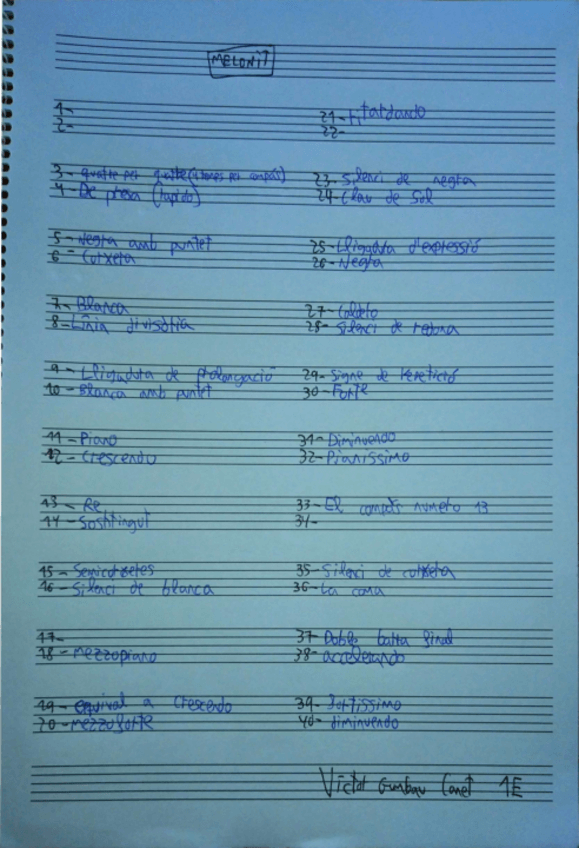 MELONIT
1-
2-
3- quatre per quatre (4 temps per compàs)
4- De presa (rapido)
5- Negra amb puntet
6- Corxera
7- Blanca
8- Linia divisòria
9- Lligadura de prolongació
10- Blanca amb puntet
11- Piano
12- Crescendo
13- Re
14- Sosthingut
15- Semicorxeres
16- Silenci de blanca
17-
18- mezzopiano
19- equival a crescendo
20- mezzoforte
21- ritardando
22-
23- Silenci de negra
24- Clau de Sol
25- Lligadura d'expressió
26- Negra
27- Calderó
28- Silenci de redona
29- Signe de repetició
30- Forte
31- Diminuendo
32- Pianissimo
33- El compàs numero 13
34-
35- Silenci de corxera
36- La coma
37 Doble barra final
38- accelerando
39- Fortissimo
40- diminuendo
Víctor Gumbau Canet 1E